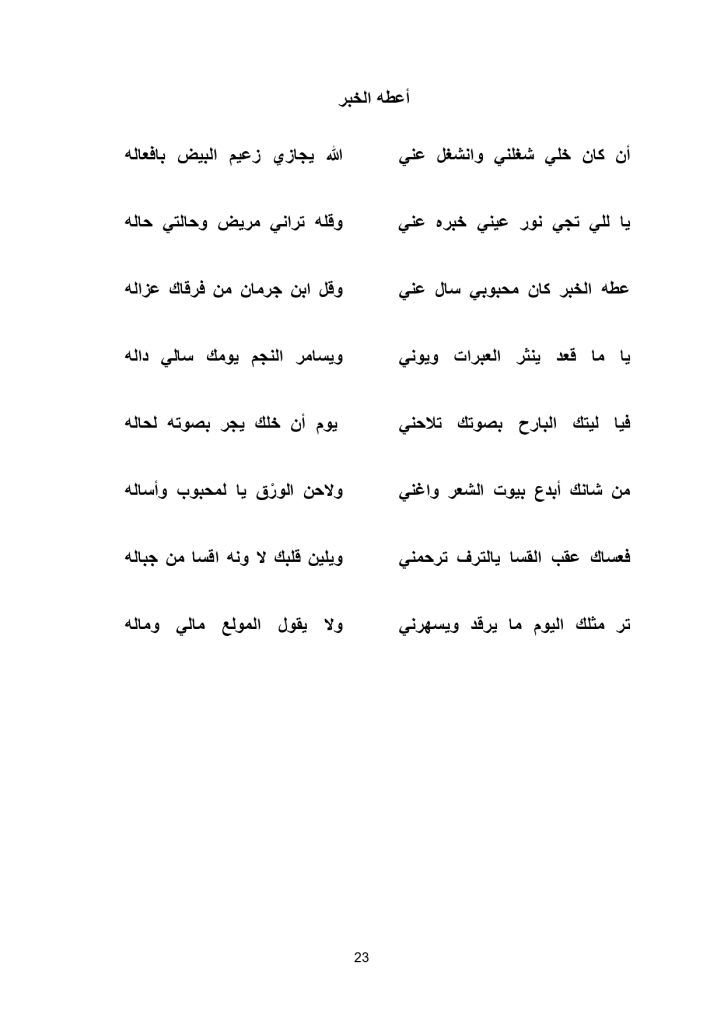 أعطه الخبر
أن كان خلي شغلني وانشغل عني الله يجازي زعيم البيض بافعاله
يا للي تجي نور عيني خبره عني وقله تراني مريض وحالتي حاله
عطه الخبر كان محبوبي سال عني وقل ابن جرمان من فرقاك عزاله
يا ما قعد ينثر العبرات ويوني ويسامر النجم يومك سالي داله
فيا ليتك البارح بصوتك تلاحني يوم أن خلك يجر بصوته لحاله
من شانك أبدع بيوت الشعر واغني ولاحن الورْق يا لمحبوب وأساله
فعساك عقب القسا يالترف ترحمني ويلين قلبك لا ونه اقسا من جباله
تر مثلك اليوم ما يرقد ويسهرني ولا يقول المولع مالي وماله
23